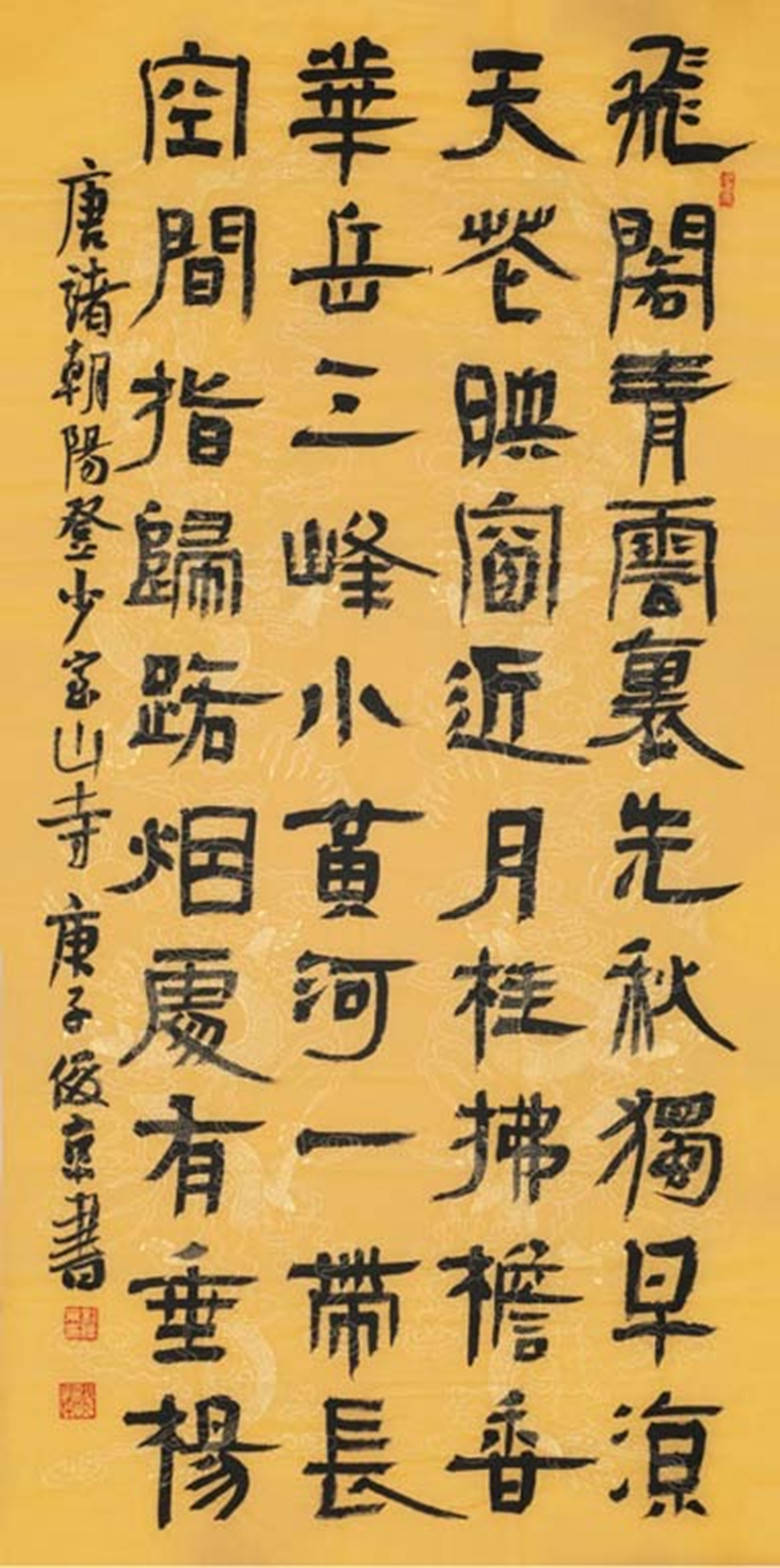 飛閣青雲裏先秋獨早涼
天花映窗近月桂拂檐香
華岳三峰小黃河一帶長
空間指歸路烟處有垂楊
唐諸朝陽登少室山寺 庚子俊京書